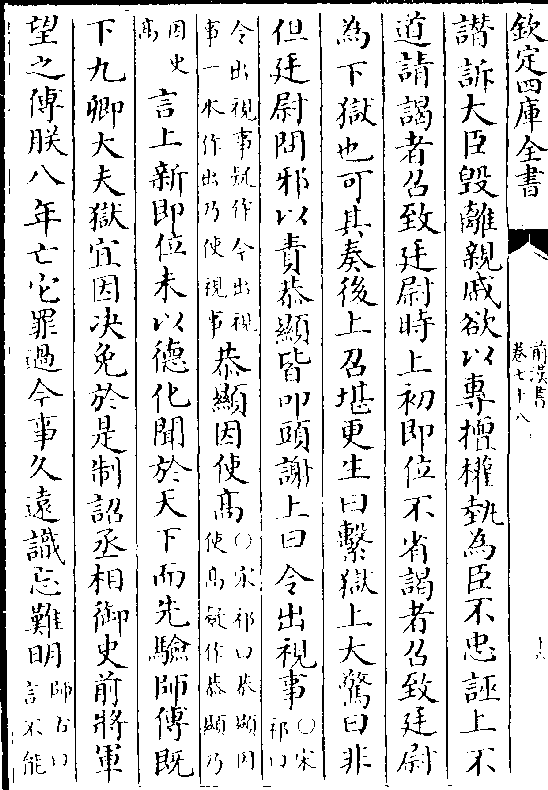 欽定四庫全書
前漢書
卷七十八
譛訴大臣毀離親戚欲以專擅權埶為臣不忠誣上不
道請謁者召致廷尉時上初即位不省謁者召致廷尉
為下獄也可其奏後上召堪更生曰繫獄上大驚曰非
但廷尉問邪以責恭顯皆叩頭謝上曰令出視事〇宋祁曰
令出視事疑作今出視事一本作出乃使視事恭顯因使高〇宋祁曰恭顯因使高疑作恭顯乃
因史高言上新即位未以德化聞於天下而先驗師傅既
下九卿大夫獄宜因决免於是制詔丞相御史前將軍
望之傅朕八年亡它罪過今事久遠識忘難明師古曰言不能